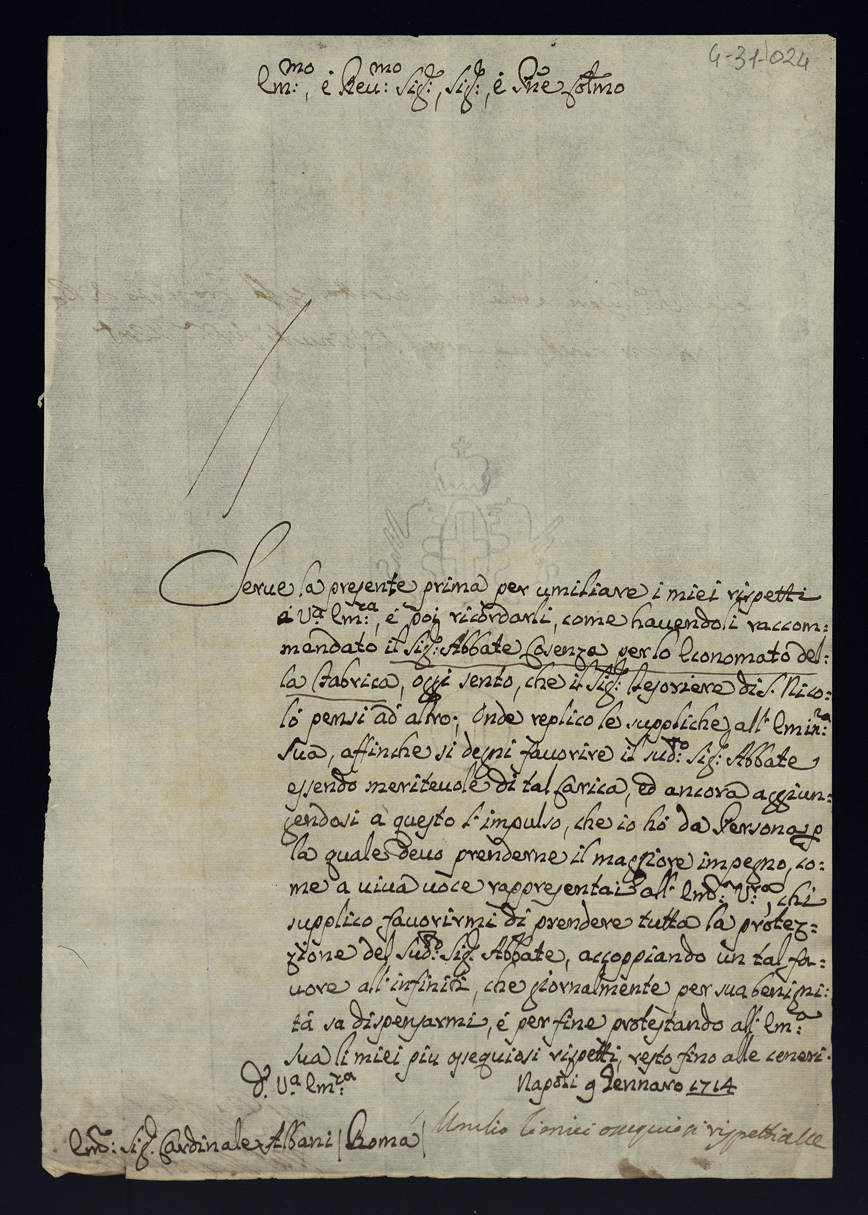 4-31-024
Em:mo, é Reu:mo Sig:r, Sig:r, é Pne Col:mo
Serue la presente prima per umiliare i miei rispetti
á V:a Em:za, é poi ricordarli, come hauendoli raccom:
mandato il Sig:r Abbate Cosenza per lo Economato del:
la Fabrica, oggi sento, che il Sig:r Tesoriere di S. Nico:
ló pensi ad altro; Onde replico le suppliche all' Emin:za
Sua, affinche si degni fauorire il sud:o Sig:r Abbate
essendo meriteuole di tal Carica, ed ancora aggiun:
gendosi a questo l'impulso, che io hó da Persona, p
la quale deuo prenderne il maggiore impegno, co:
me a uiua uoce rappresentai all' Em:za V:ra, chi
supplico fauorirmi di prendere tutta la protez:
zione del Sud:o Sig:r Abbate, accoppiando un tal fa:
uore all' infiniti, che giornalmente per sua benigni:
tá sa dispensarmi, é per fine protestando all' Em:a
Sua li miei piu ossequiosi rispetti, resto fino alle ceneri.
D. V:a Em:za Napoli 9 Gennaro 1714
Em:o Sig:r Cardinale Albani / Roma /
Umilio li miei ossequiosi rispetti alle